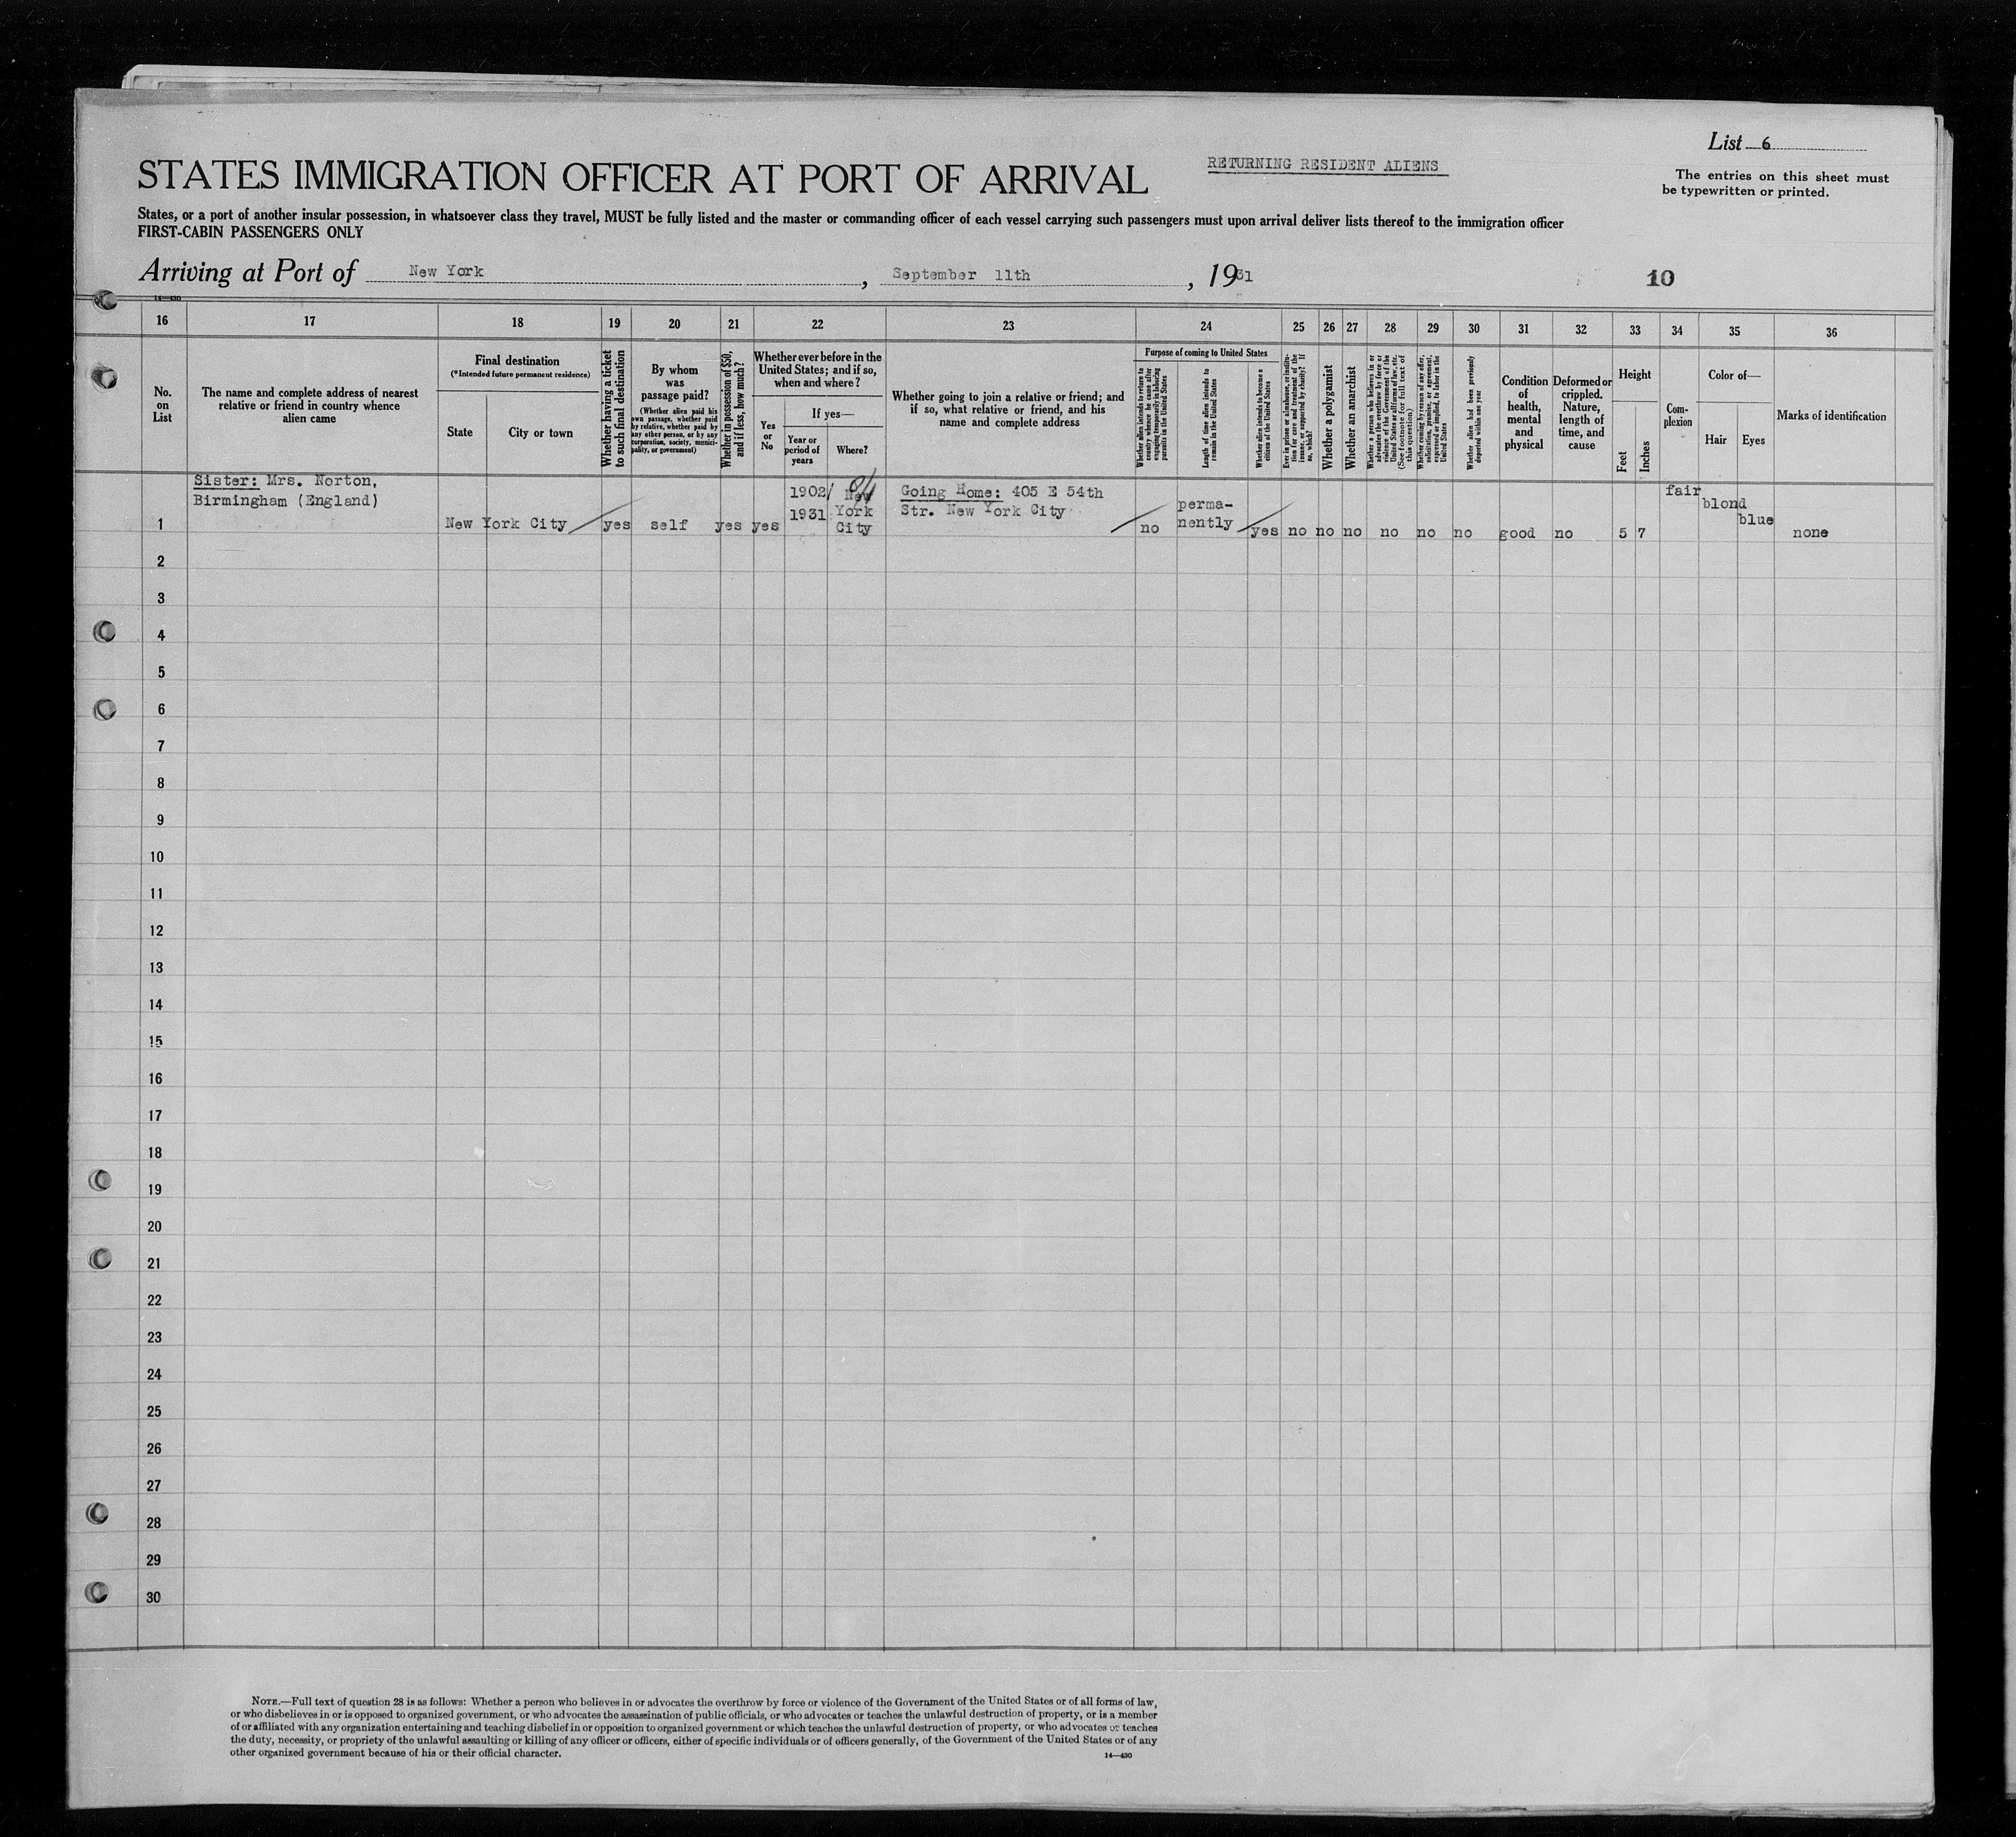 List 6
RETURNING RESIDENT ALIENS
The entries on this sheet must
be typewritten or printed.
STATES IMMIGRATION OFFICER AT PORT OF ARRIVAL
States, or a port of another insular possession, in whatsoever class they travel, MUST be fully listed and the master or commanding officer of each vessel carrying such passengers must upon arrival deliver lists thereof to the immigration officer
FIRST-CABIN PASSENGERS ONLY
Arriving at Port of New York, September 11th, 1931
10
14—430
16 17 18 19 20 21 22 23 24 25 26 27 28 29 30 31 32 33 34 35 36
No.
on
List
The name and complete address of nearest
relative or friend in country whence
alien came
Final destination
(*Intended future permanent residence)
State
City or town
Whether having a ticket
to such final destination
By whom
was
passage paid?
(Whether alien paid his
own passage, whether paid
by relative, whether paid by
any other person, or by any
corporation, society, munici-
pality, or government)
Whether in possession of $50,
and if less, how much?
Whether ever before in the
United States; and if so,
when and where?
Yes
or
No
If yes—
Year or
period of
years
Where?
Whether going to join a relative or friend; and
if so, what relative or friend, and his
name and complete address
Purpose of coming to United States
Whether alien intends to return to
country whence he came after
engaging temporarily in laboring
pursuits in the United States
Length of time alien intends to
remain in the United States
Whether alien intends to become a
citizen of the United States
Ever in prison or almshouse, or institu-
tion for care and treatment of the
insane, or supported by charity? If
so, which?
Whether a polygamist
Whether an anarchist
Whether a person who believes in or
advocates the overthrow by force or
violence of the Government of the
United States or all forms of law, etc.
(See footnote for full text of
this question)
Whether coming by reason of any offer,
solicitation, promise, or agreement,
expressed or implied, to labor in the
United States
Whether alien had been previously
deported within one year
Condition
of
health,
mental
and
physical
Deformed or
crippled.
Nature,
length of
time, and
cause
Height
Feet
Inches
Com-
plexion
Color of—
Hair
Eyes
Marks of identification
Sister: Mrs. Norton,
Birmingham (England)
1
New York City
yes
self
yes
yes
1902/
1931
New
York
City
Going Home: 405 E 54th
Str. New York City
no
perma-
nently
yes
no
no
no
no
no
no
good
no
5
7
fair
blond
blue
none
2
3
4
5
6
7
8
9
10
11
12
13
14
15
16
17
18
19
20
21
22
23
24
25
26
27
28
29
30
NOTE.—Full text of question 28 is as follows: Whether a person who believes in or advocates the overthrow by force or violence of the Government of the United States or of all forms of law,
or who disbelieves in or is opposed to organized government, or who advocates the assassination of public officials, or who advocates or teaches the unlawful destruction of property, or is a member
of or affiliated with any organization entertaining and teaching disbelief in or opposition to organized government or which teaches the unlawful destruction of property, or who advocates or teaches
the duty, necessity, or propriety of the unlawful assaulting or killing of any officer or officers, either of specific individuals or of officers generally, of the Government of the United States or of any
other organized government because of his or their official character.
14—430